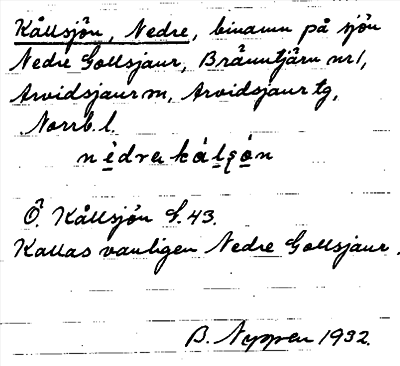 Kållsjön, Nedre, binamn på sjön
Nedre Gollsjaur, Bränntjärn nr 1,
Arvidsjaur sn, Arvidsjaur tg,
Norrb. l.
nèdra kálsọ́n
Ö. Kållsjön G. 43.
Kallas vanligen Nedre Gollsjaur.
B. Nyppen 1932.